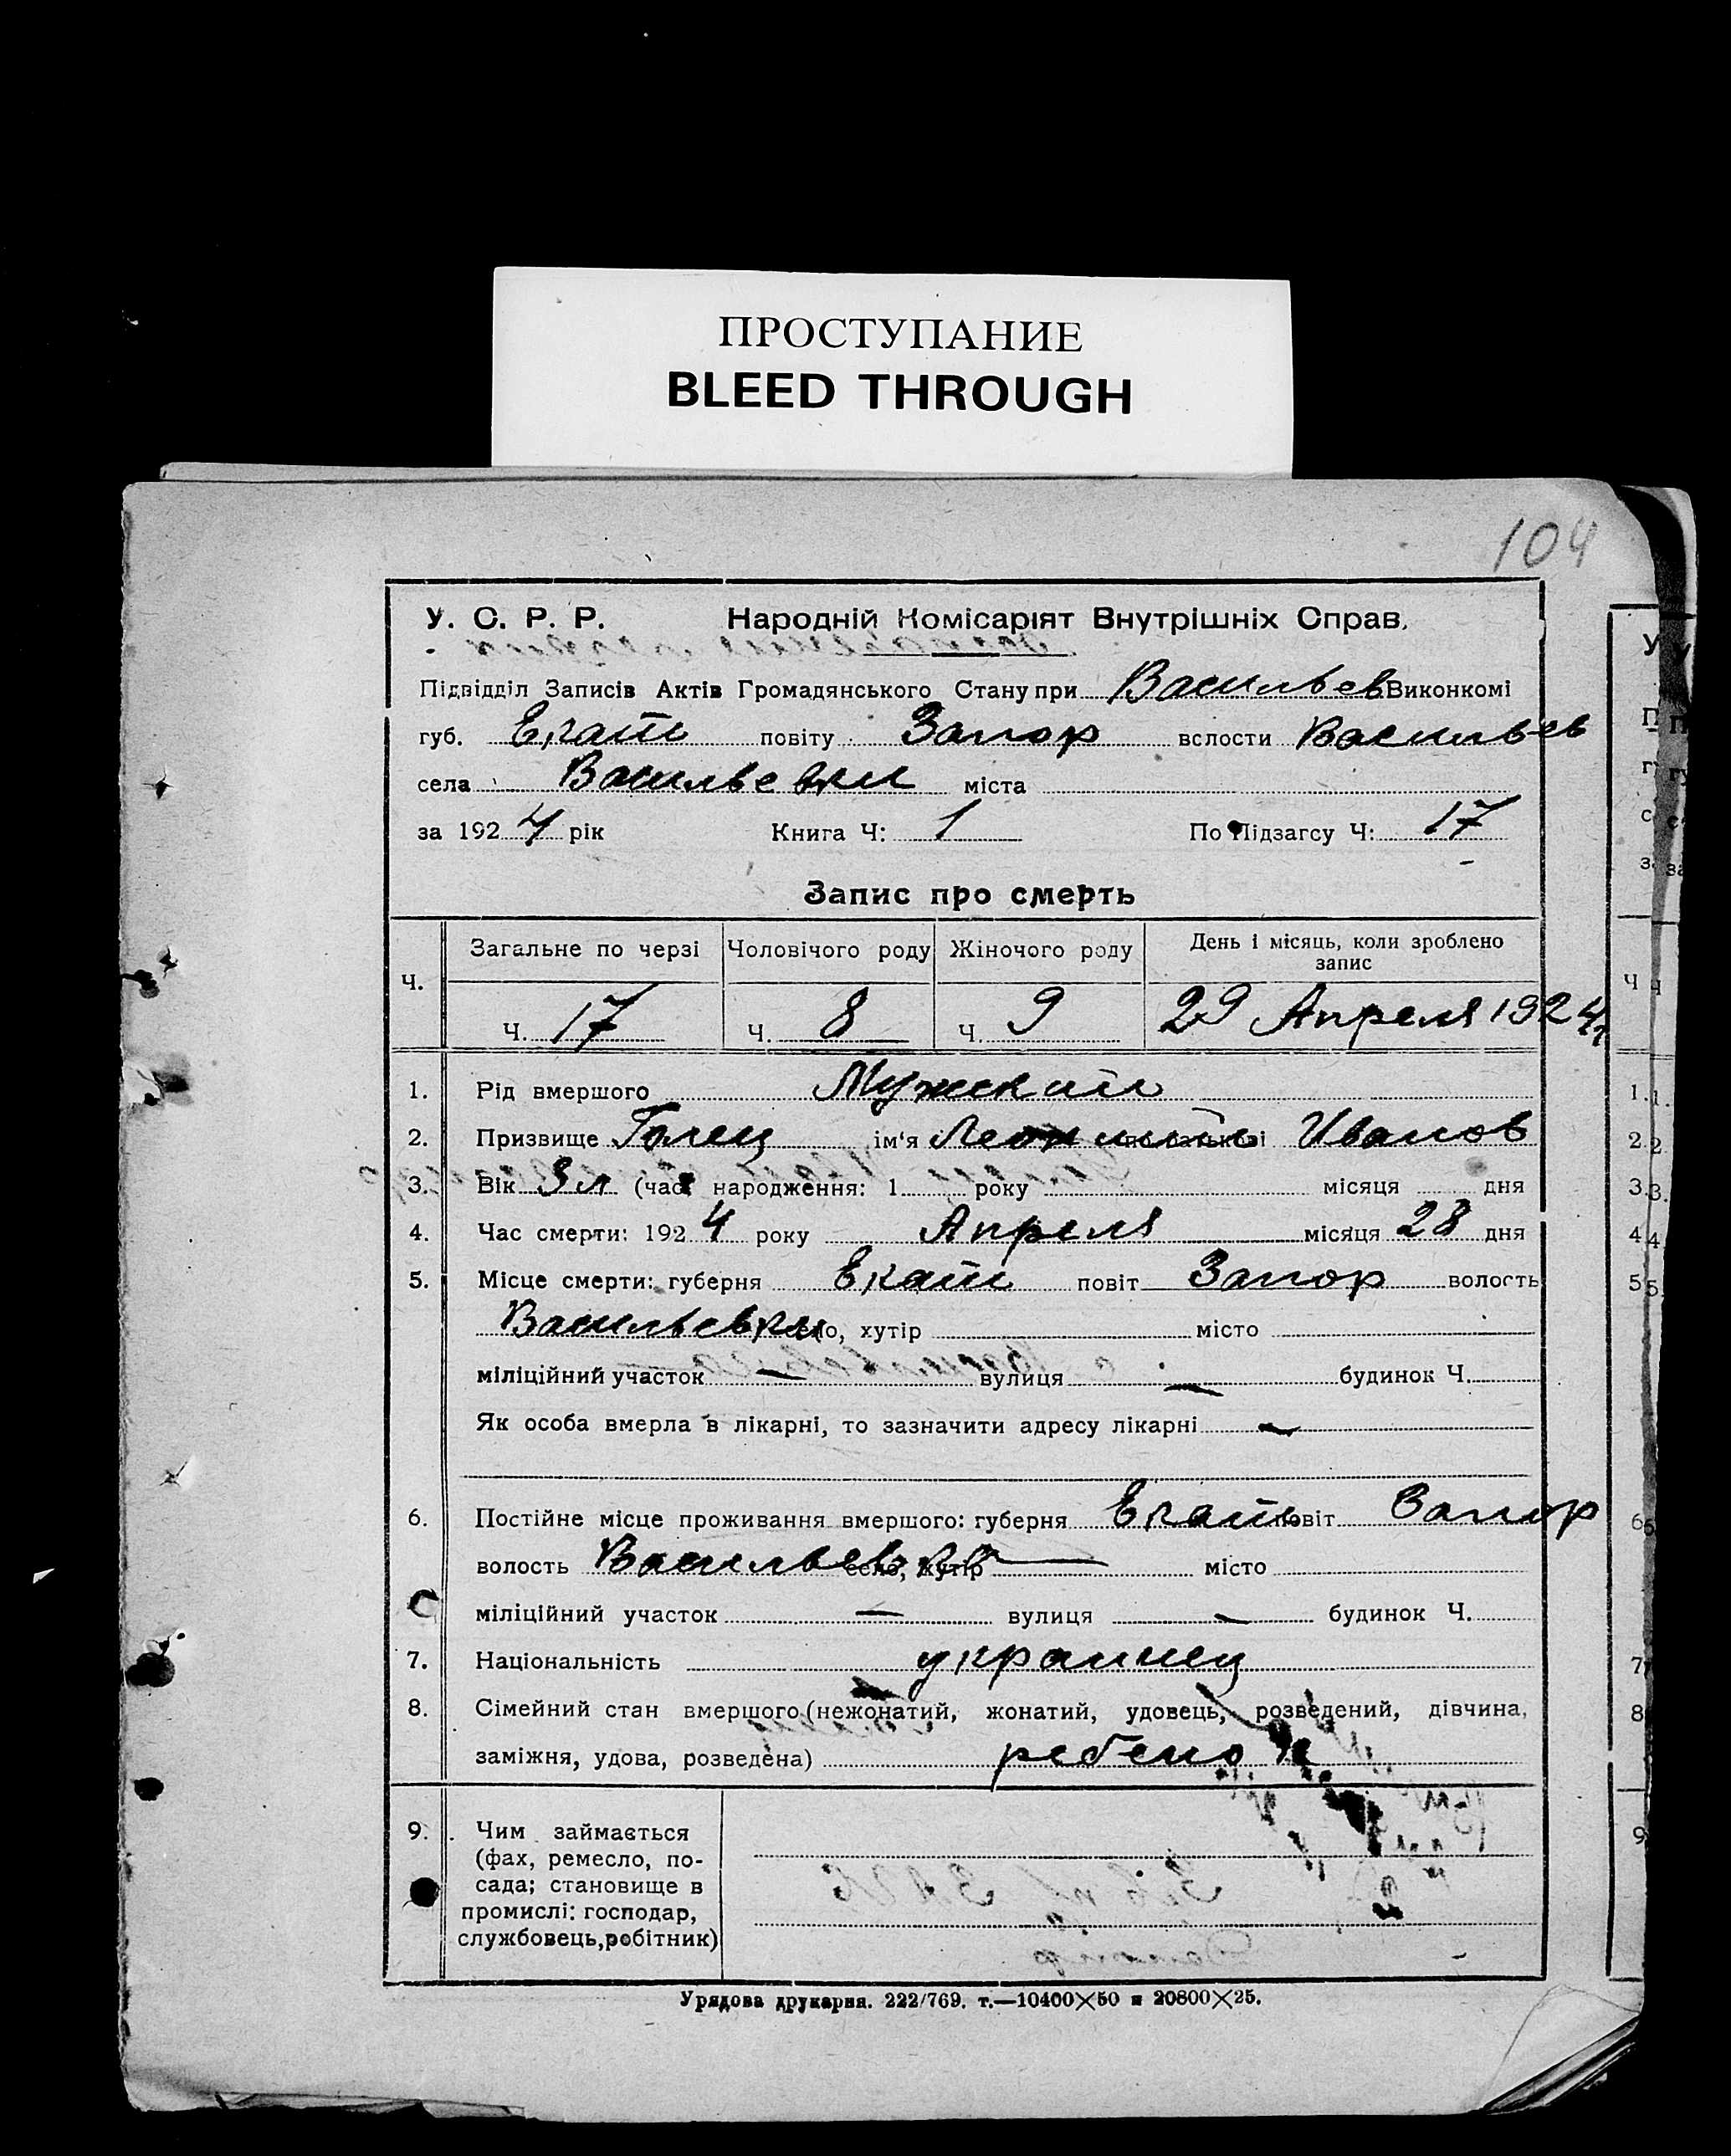 ПРОСТУПАНИЕ
BLEED THROUGH
104
У. С. Р. Р. Народній Комісаріят Внутрішніх Справ.
Підвідділ Записів Актів Громадянського Стану при Васильев Виконкомі
губ. Екат повіту Запор волости Васильев
села Васильевки міста
за 1924 рік Книга Ч: 1 По Підзагсу Ч: 17
Запис про смерть
Ч. Загальне по черзі Чоловічого роду Жіночого роду День і місяць, коли зроблено запис
Ч. 17 Ч. 8 Ч. 9 29 Апреля 1924
1. Рід вмершого Мужской
2. Призвище Голец ім'я по батькові Иванов
3. Вік 3 л (час народження: 1 року місяця дня
4. Час смерти: 1924 року Апреля місяця 28 дня
5. Місце смерти: губерня Екат повіт Запор волость
Васильевки село, хутір місто
міліційний участок — вулиця — будинок Ч.
Як особа вмерла в лікарні, то зазначити адресу лікарні —
6. Постійне місце проживання вмершого: губерня Екат повіт Запор
волость Васильев село, хутір — місто
міліційний участок — вулиця — будинок Ч.
7. Національність украинец
8. Сімейний стан вмершого (нежонатий, жонатий, удовець, розведений, дівчина,
заміжня, удова, розведена) ребенок
9. Чим займається
(фах, ремесло, по-
сада; становище в
промислі: господар,
службовець, робітник)
Урядова друкарня. 222/769. т.—10400×50 и 20800×25.